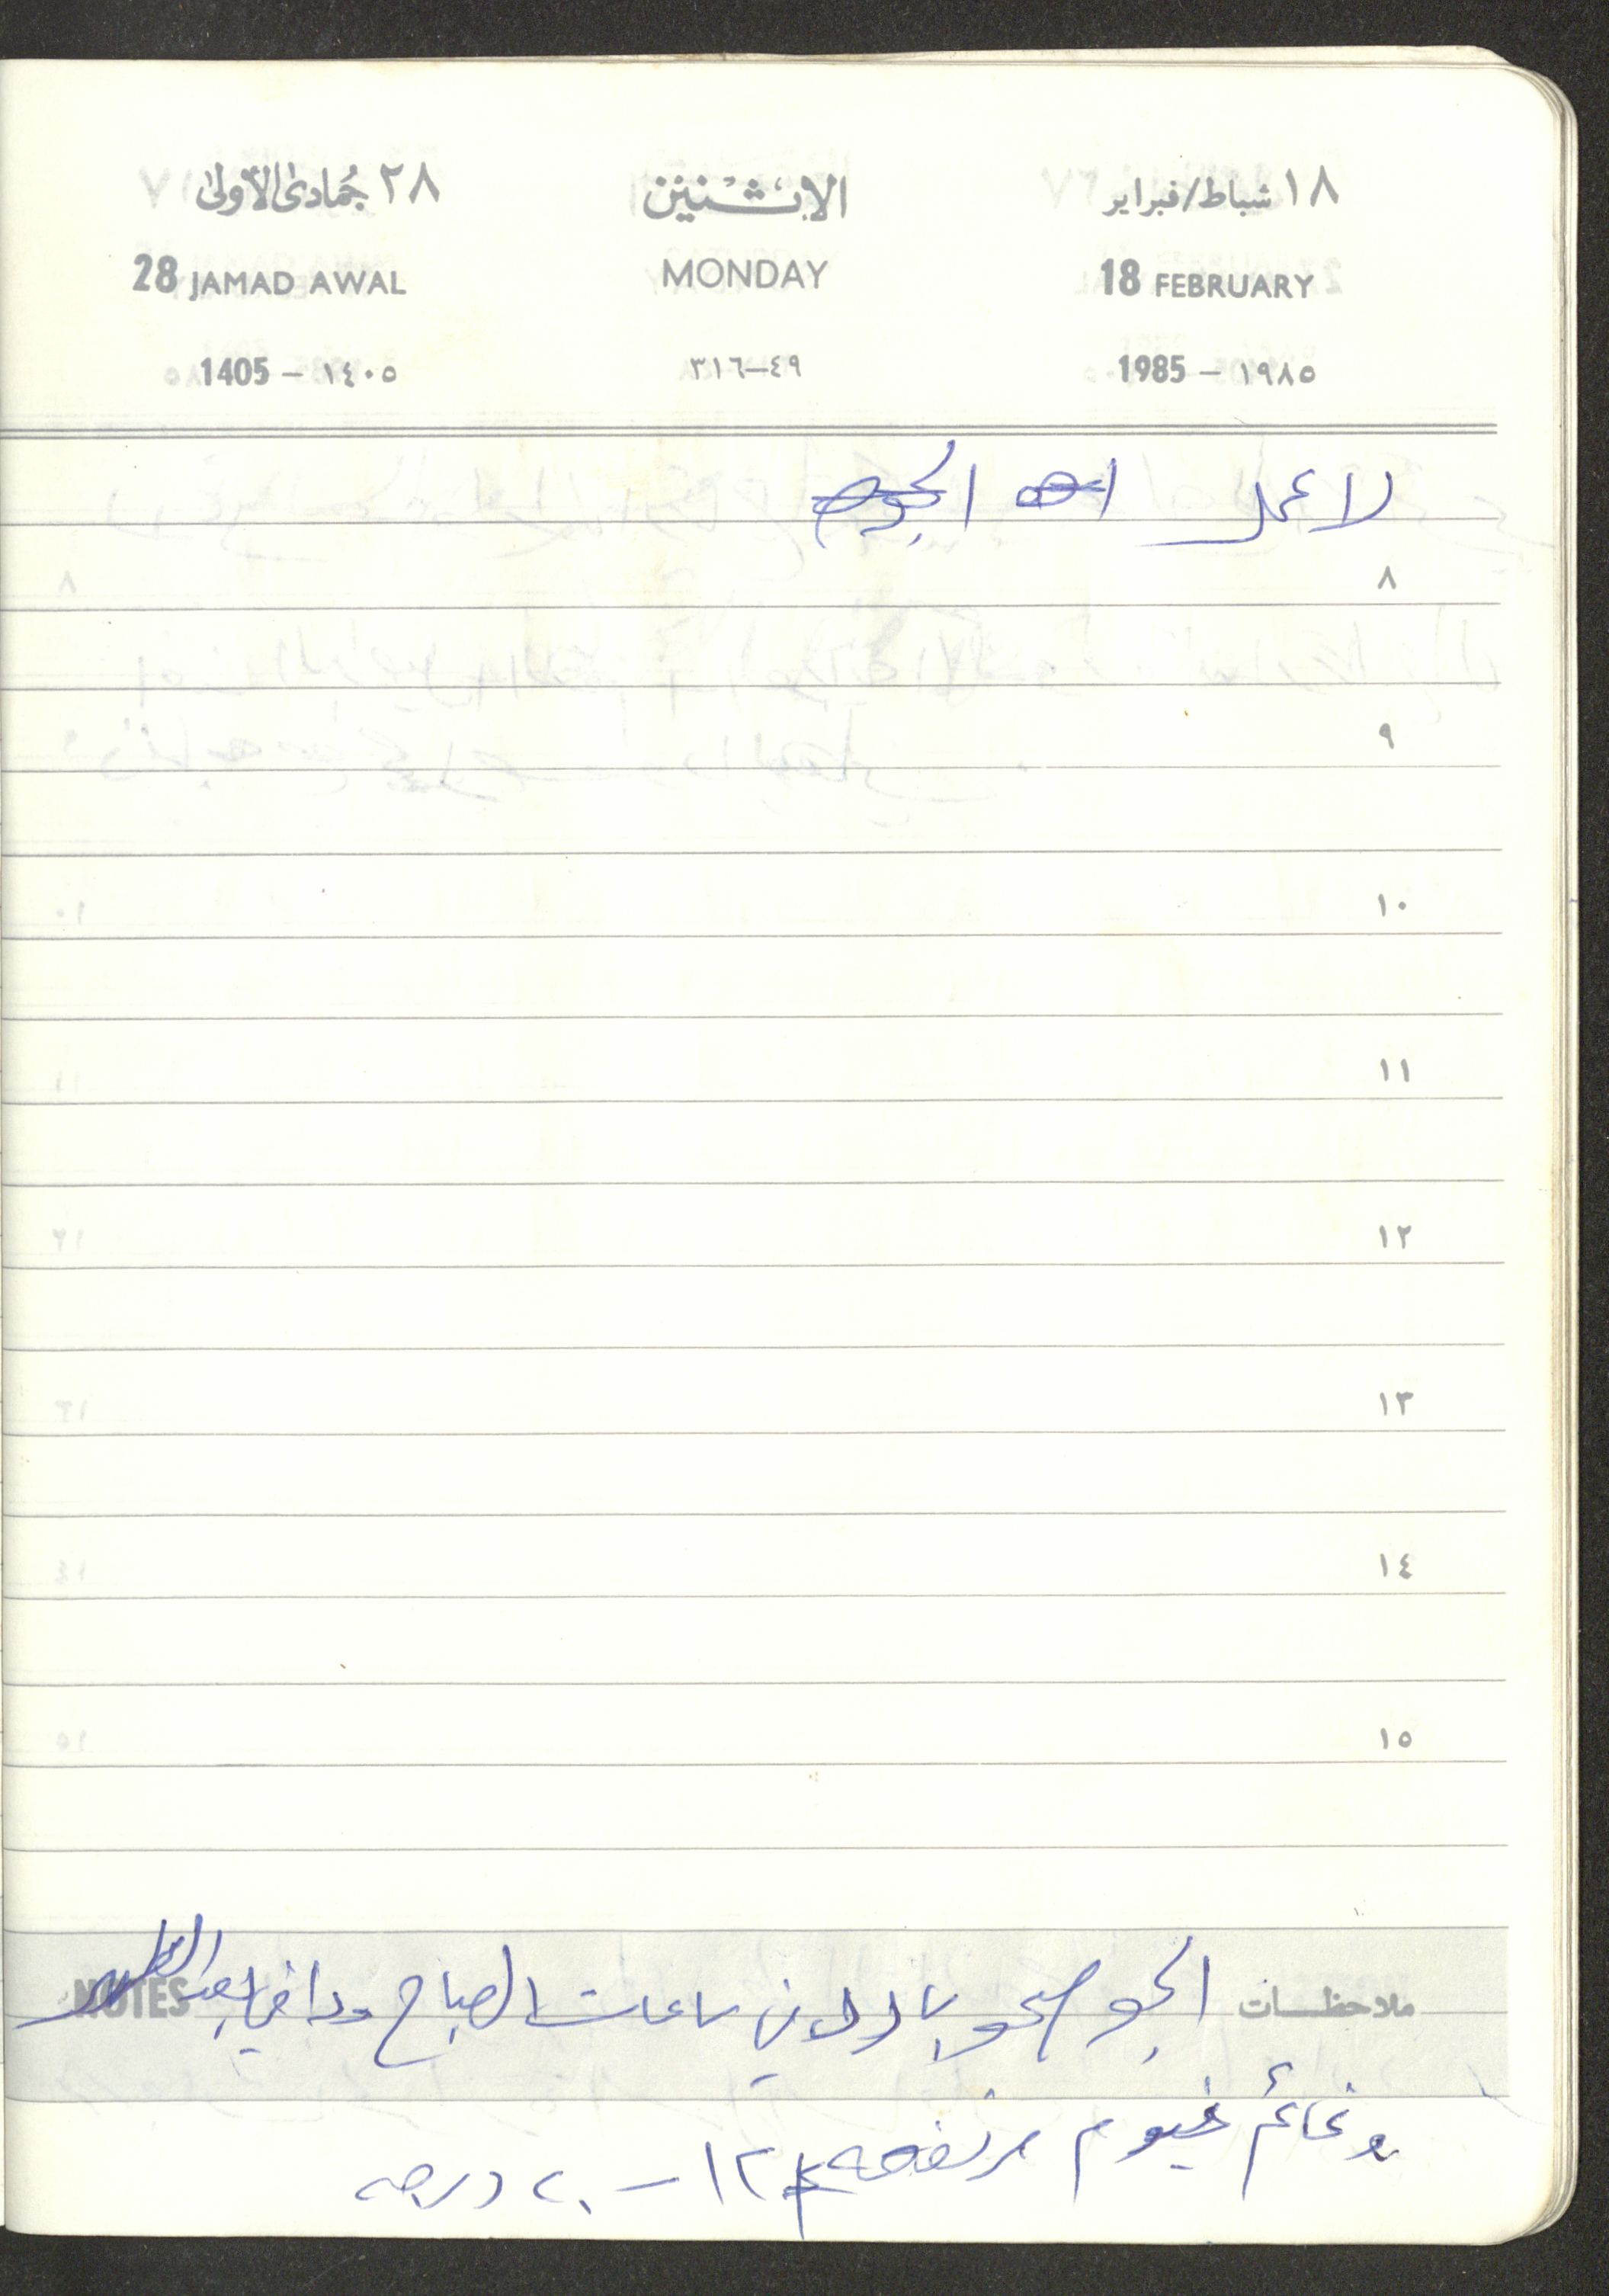 ١٨ شباط/فبراير الاثنين ٢٨ جمادى الأولى
18 FEBRUARY MONDAY 28 JAMAD AWAL
1985 - ١٩٨٥ ٤٩-٣١٦ 1405 - ١٤٠٥
لا عمل الجو
٨
٩
١٠
١١
١٢
١٣
١٤
١٥
ملاحظات الجو صحو بارد في ساعات الصباح ودافي بعد الظهر NOTES
وغائم غيوم مرتفعه ١٢ - ٢٠ درجه